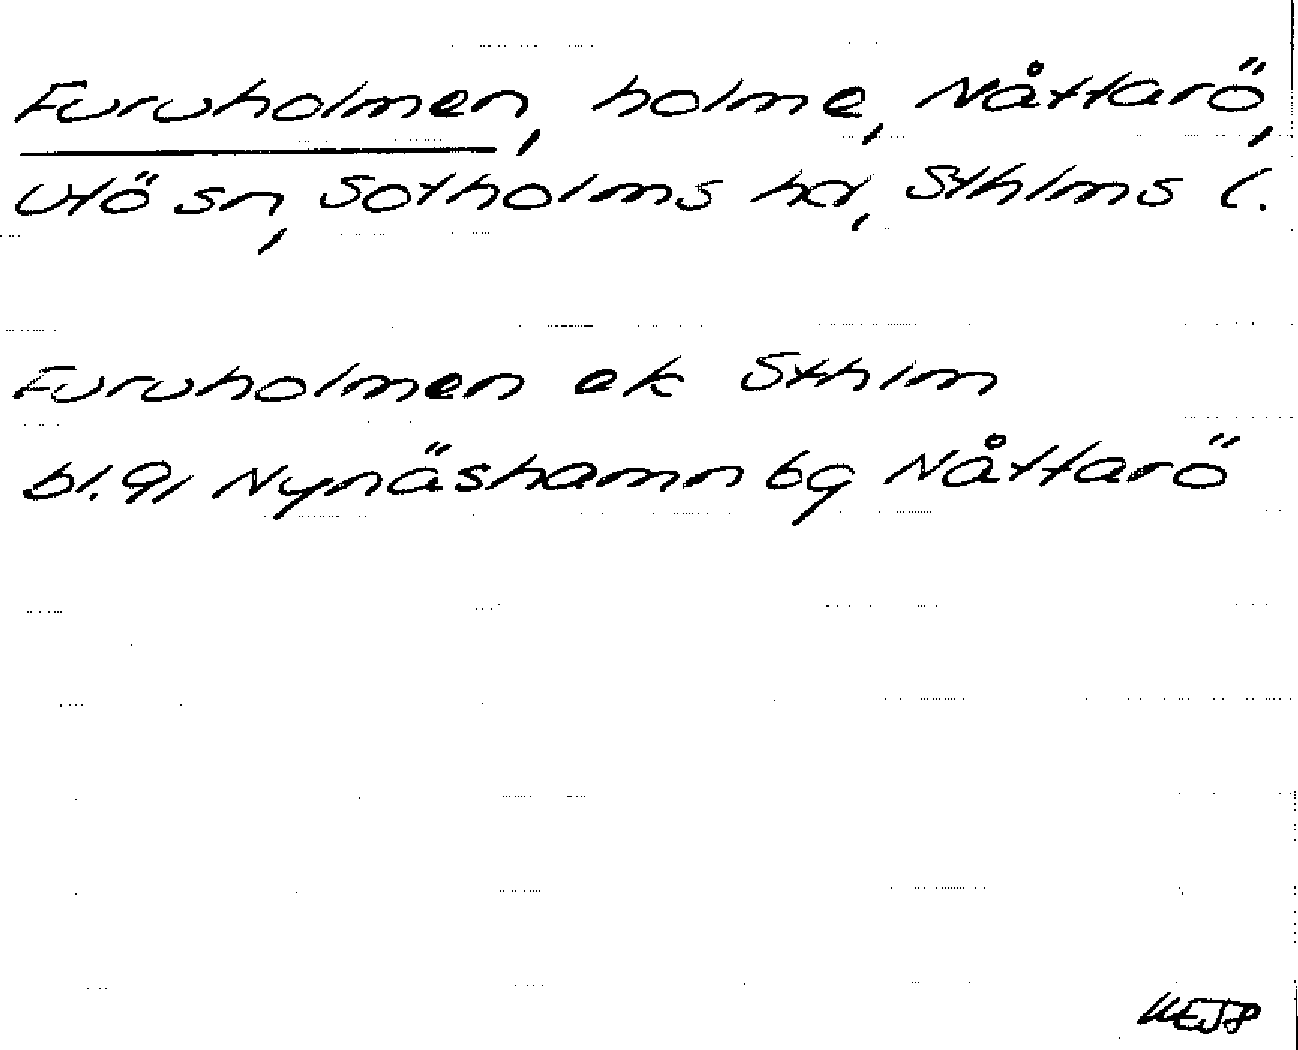 Furuholmen, holme, Nåttarö,
Utö sn, Sotholms hd, Sthlms l.
Furuholmen ek Sthlm
bl. 91 Nynäshamn bg Nåttarö